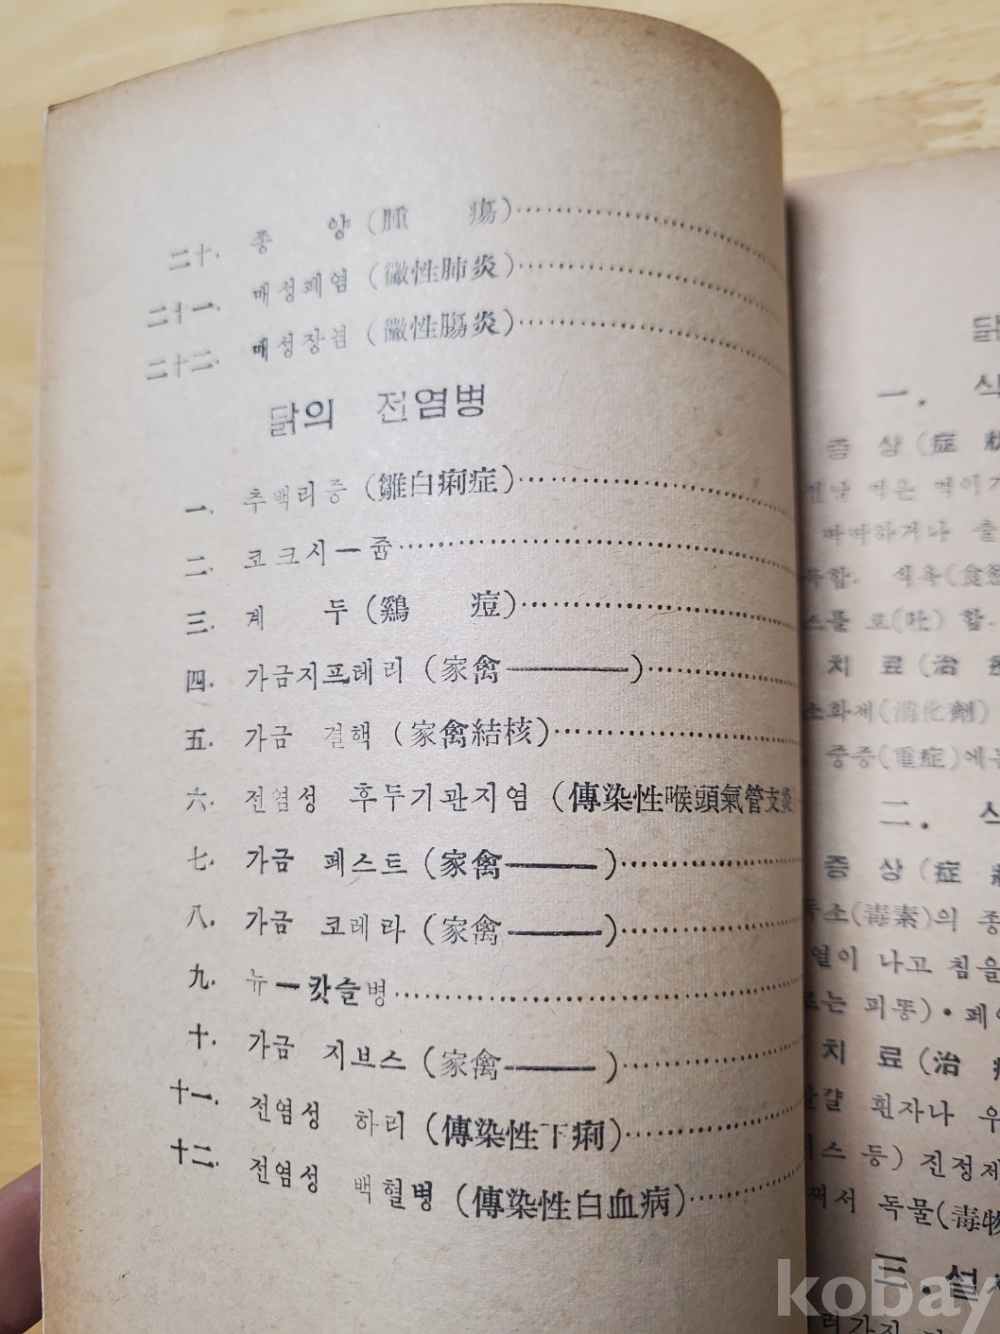 二十. 종 양 (腫 瘍)
二十一. 매성폐염 (黴性肺炎)
二十二. 매성장염 (黴性腸炎)
닭의 전염병
一. 추백리증 (雛白痢症)
二. 코크시ー쥼
三. 계 두 (鷄 痘)
四. 가금지프테리 (家禽———)
五. 가금 결핵 (家禽結核)
六. 전염성 후두기관지염 (傳染性喉頭氣管支炎)
七. 가금 페스트 (家禽———)
八. 가금 코레라 (家禽———)
九. 뉴ー캇슬병
十. 가금 지브스 (家禽———)
十一. 전염성 하리 (傳染性下痢)
十二. 전염성 백혈병 (傳染性白血病)
닭
一. 식
증 상 (症 狀
먹은 먹이가
따따하거나 출
식욕(食慾
스를 토(吐) 함.
치 료 (治 療
소화제(消化劑)
중증(重症)에는
二. 식
증 상 (症 狀
독소(毒素)의 종
열이 나고 침을
는 피똥)·페
치 료 (治 療
달걀 흰자나 우
스 등) 진정제
써서 독물(毒物
三. 설사
kobay